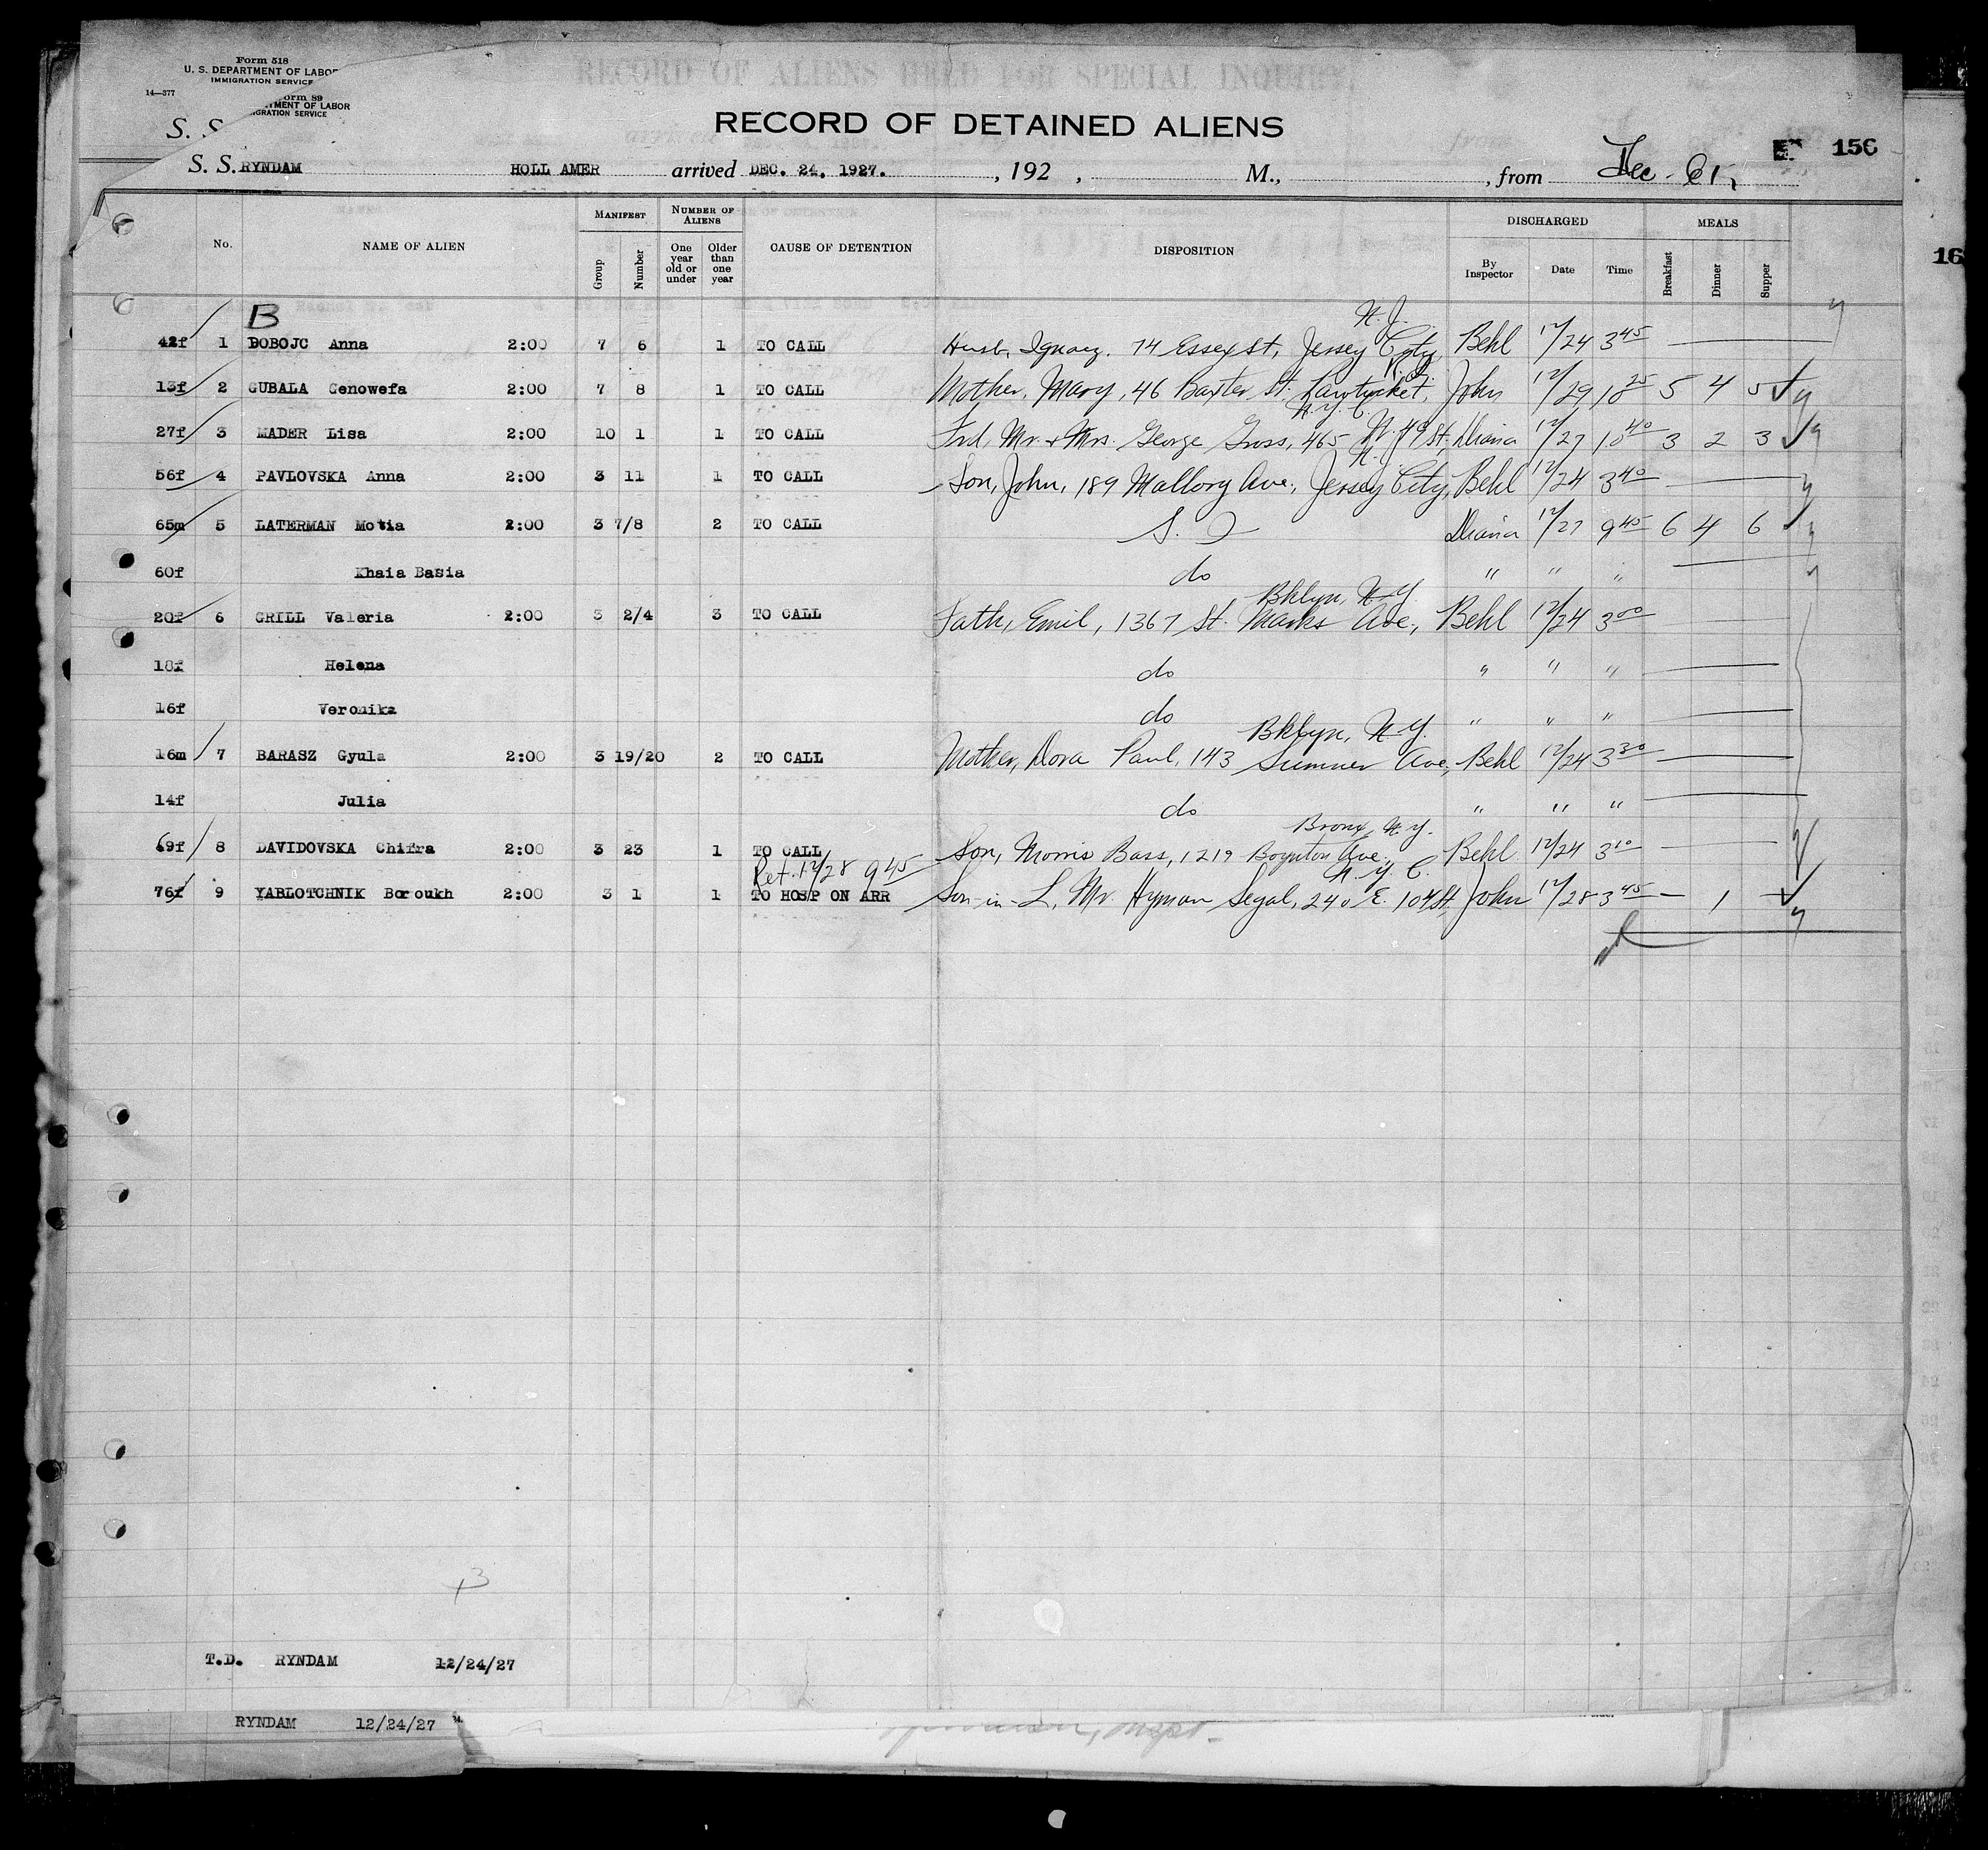 Form 518
U. S. DEPARTMENT OF LABOR
IMMIGRATION SERVICE
14—377
orm 89
TMENT OF LABOR
IGRATION SERVICE
RECORD OF ALIENS HELD FOR SPECIAL INQUIRY.
S. S.
RECORD OF DETAINED ALIENS
156
S. S. RYNDAM HOLL AMER arrived DEC. 24, 1927. , 192 , M., , from
16
No. NAME OF ALIEN MANIFEST Group Number NUMBER OF ALIENS One year old or under Older than one year CAUSE OF DETENTION DISPOSITION DISCHARGED By Inspector Date Time MEALS Breakfast Dinner Supper
B N. J.
42f 1 BOBOJC Anna 2:00 7 6 1 TO CALL Husb, Ignacz. 74 Essex St, Jersey City Behl 12/24 3 45
13f 2 GUBALA Genowefa 2:00 7 8 1 TO CALL Mother, Mary, 46 Baxter St. Pawtucket, R.I. John 12/29 10 25 5 4 5
N. Y. C.
27f 3 MADER Lisa 2:00 10 1 1 TO CALL Frd, Mr. & Mrs. George Gross, 465 W. 49 St, 12/27 10 40 3 2 3
56f 4 PAVLOVSKA Anna 2:00 3 11 1 TO CALL Son, John, 189 Mallory Ave., Jersey City, Behl 12/24 3 40
65m 5 LATERMAN Motia 2:00 3 7/8 2 TO CALL S. I 12/27 9 45 6 4 6
60f Khaia Basia do " " "
Bklyn, N.Y.
20f 6 GRILL Valeria 2:00 3 2/4 3 TO CALL Fath, Emil, 1367 St. Marks Ave., Behl 12/24 3 00
18f Helena do " " "
16f Veronika do " " "
Bklyn, N.Y.
16m 7 BARASZ Gyula 2:00 3 19/20 2 TO CALL Mother, Dora Paul, 143 Sumner Ave., Behl 12/24 3 30
14f Julia do " " "
Bronx, N.Y.
69f 8 DAVIDOVSKA Chifra 2:00 3 23 1 TO CALL Son, Morris Bass, 1219 Boynton Ave., Behl 12/24 3 10
Ret. 12/28 9 45 N. Y. C.
76f 9 YABLOTCHNIK Boroukh 2:00 3 1 1 TO HOSP ON ARR Son-in-L, Mr. Hyman Segal, 240 E. 104 St. John 12/28 3 45 — 1 —
T.D. RYNDAM 12/24/27
RYNDAM 12/24/27